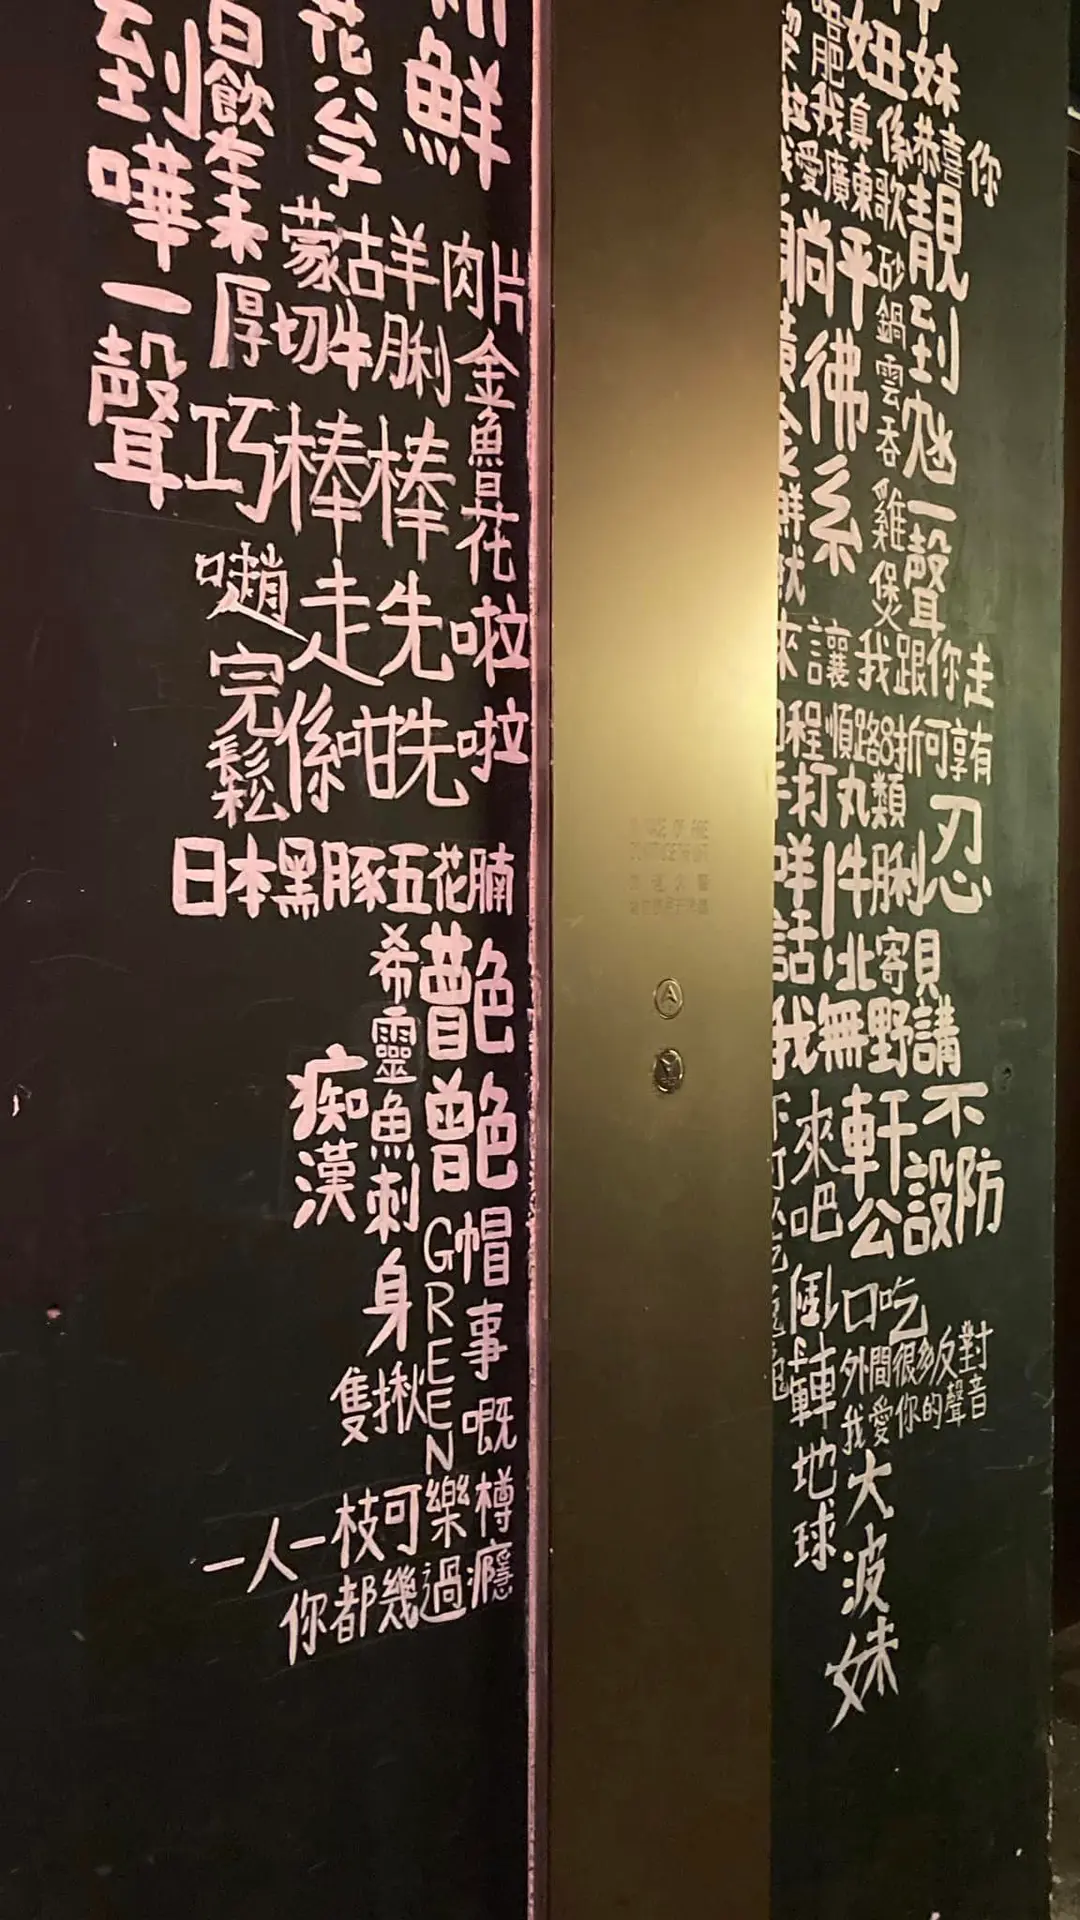 新鮮
花公仔
日飲左未
到嘩一聲
蒙古羊肉片
厚切牛脷
金魚旦花
巧棒棒
嗌趙完鬆
走先啦
係咁先啦
日本黑豚五花腩
希靈魚刺身
艷艷
痴漢
GREEN帽事
隻揪
嘅樽
一人一枝可樂
你都幾過癮
妹恭喜你
妞係歌
我真
我愛廣東歌
靚到氹一聲
砂鍋雲吞雞煲
躺平
彿系
黃金
來讓我跟你走
程順路8折可享有
手打丸類
忍
咩話
牛脷
北寄貝
我無野講
來吧
軒公
不設防
倒轉地球
口吃
外間很多反對
我愛你的聲音
大波妹
IN CASE OF FIRE